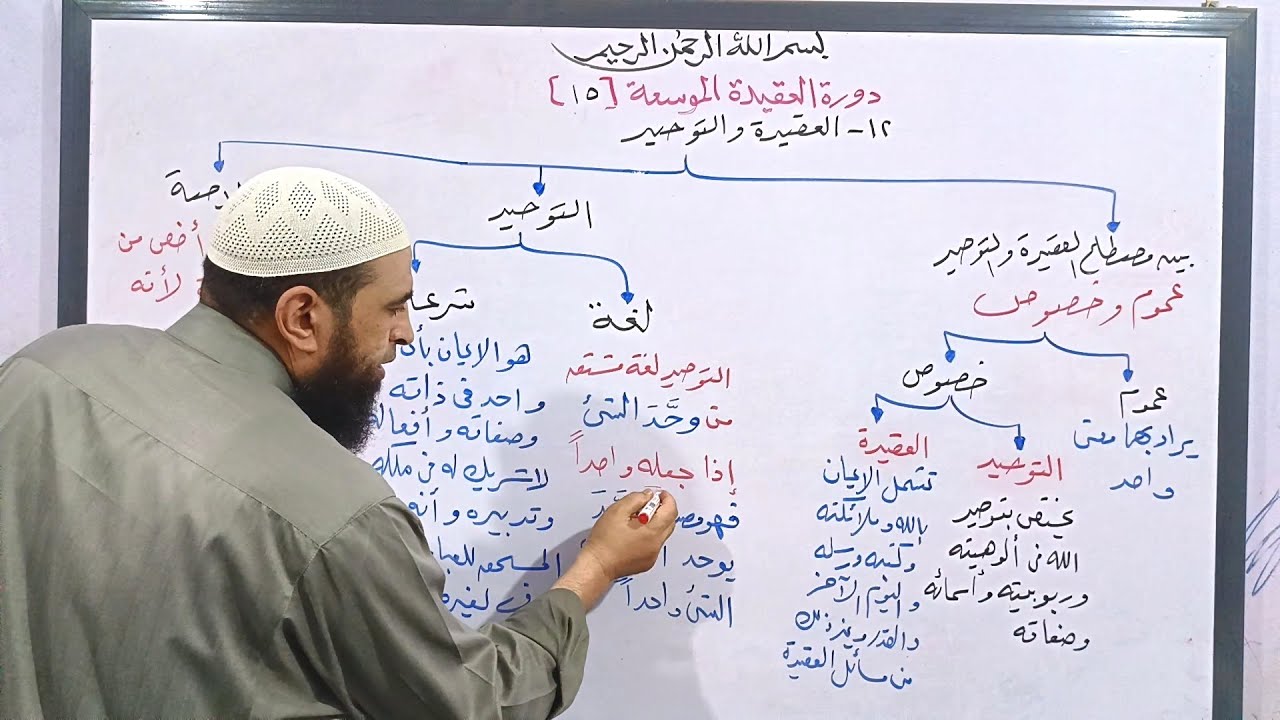 بسم الله الرحمن الرحيم
دورة العقيدة الموسعة [١٥]
١٢- العقيدة والتوحيد
بين مصطلح العقيدة والتوحيد
عموم وخصوص
عموم
يراد بهما معنى
واحد
خصوص
التوحيد
يختص بتوحيد
الله في ألوهيته
وربوبيته وأسمائه
وصفاته
العقيدة
تشمل الإيمان
بالله وملائكته
وكتبه ورسله
واليوم الآخر
والقدر وغير ذلك
من مسائل العقيدة
التوحيد
لغة
التوحيد لغة مشتق
من وحَّدَ الشئ
إذا جعله واحداً
فهو
يوحد
الشئ واحداً
شرعا
هو الإيمان
واحد في ذاته
وصفاته وأفعاله
لا شريك له في ملكه
وتدبيره وأنه
المستحق
لغيره
أخص من
لأنه